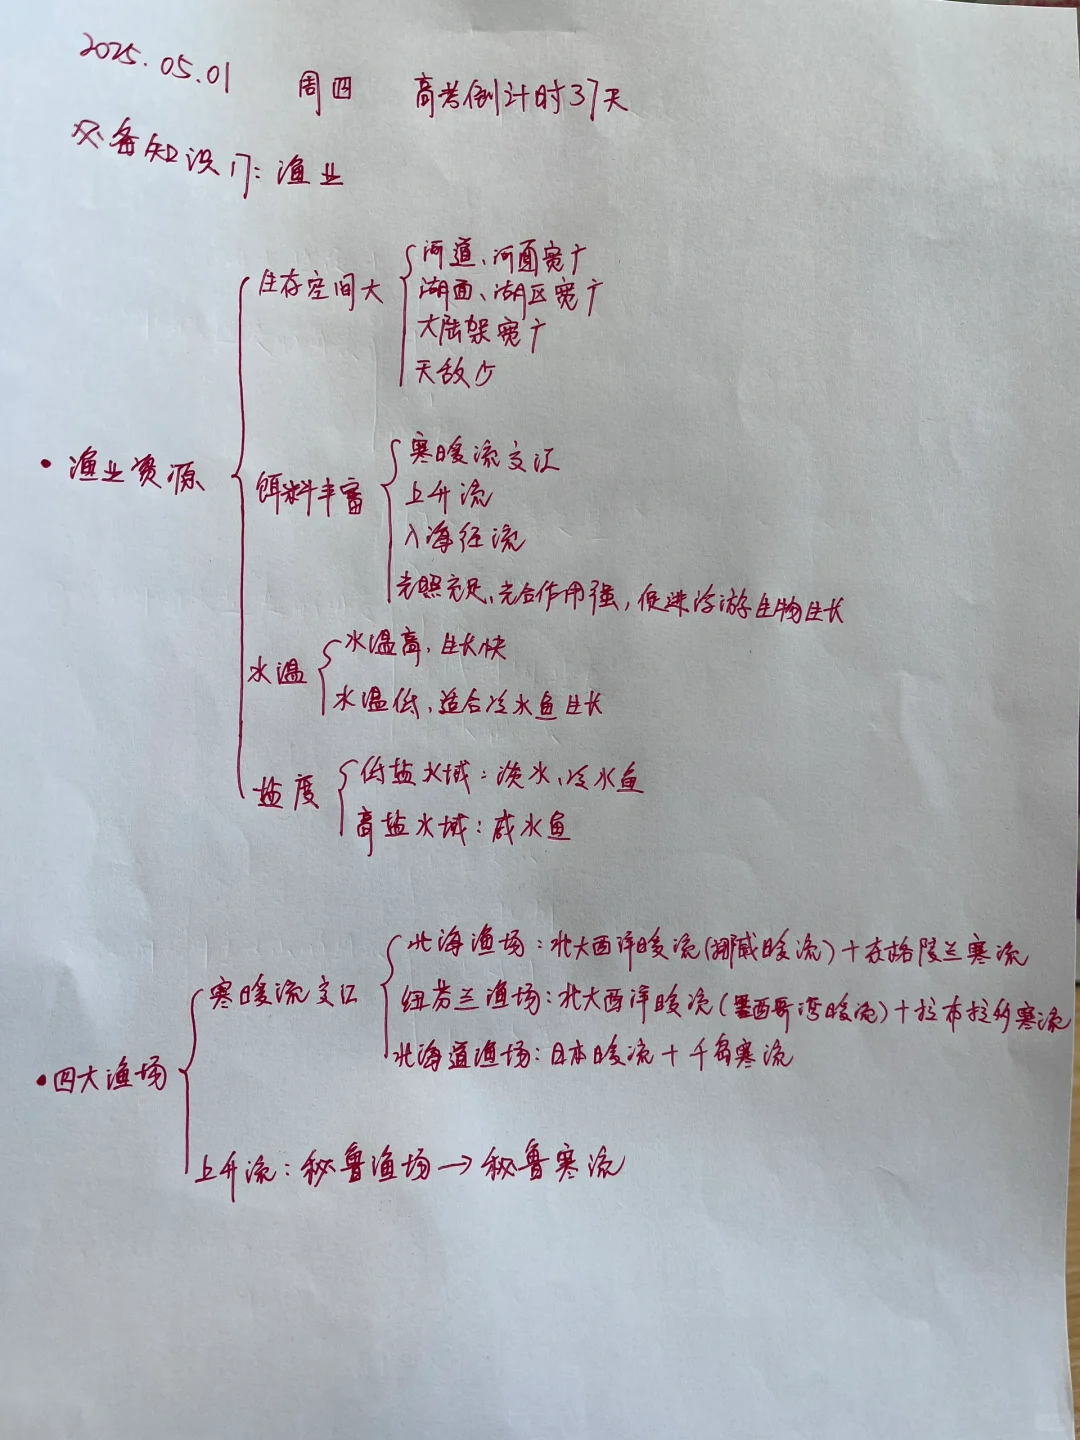 2025.05.01 周四 高考倒计时37天
必备知识门: 渔业
生存空间大
河道、河面宽广
湖面、湖区宽广
大陆架宽广
天敌少
• 渔业资源
饵料丰富
寒暖流交汇
上升流
入海径流
光照充足、光合作用强，促进浮游生物生长
水温
水温高，生长快
水温低，适合冷水鱼生长
盐度
低盐水域：淡水、冷水鱼
高盐水域：咸水鱼
• 四大渔场
寒暖流交汇
北海渔场：北大西洋暖流(挪威暖流)+东格陵兰寒流
纽芬兰渔场：北大西洋暖流(墨西哥湾暖流)+拉布拉多寒流
北海道渔场：日本暖流+千岛寒流
上升流：秘鲁渔场→秘鲁寒流